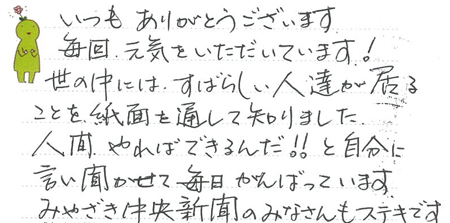 いつも ありがとうございます
毎回、元気をいただいています!
世の中には、すばらしい人達が居る
ことを、紙面を通して知りました、
人間、やればできるんだ!!と自分に
言い聞かせて毎日がんばっています
みやざき中央新聞のみなさんもステキです